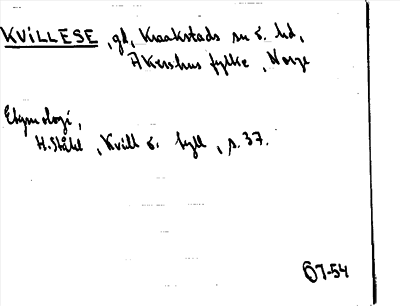 KVILLESE, gd, Kraakstads sn o. hd,
Akershus fylke, Norge
Etymologi,
H. Ståhl, Kvill o. tyll, s. 37.
67-54